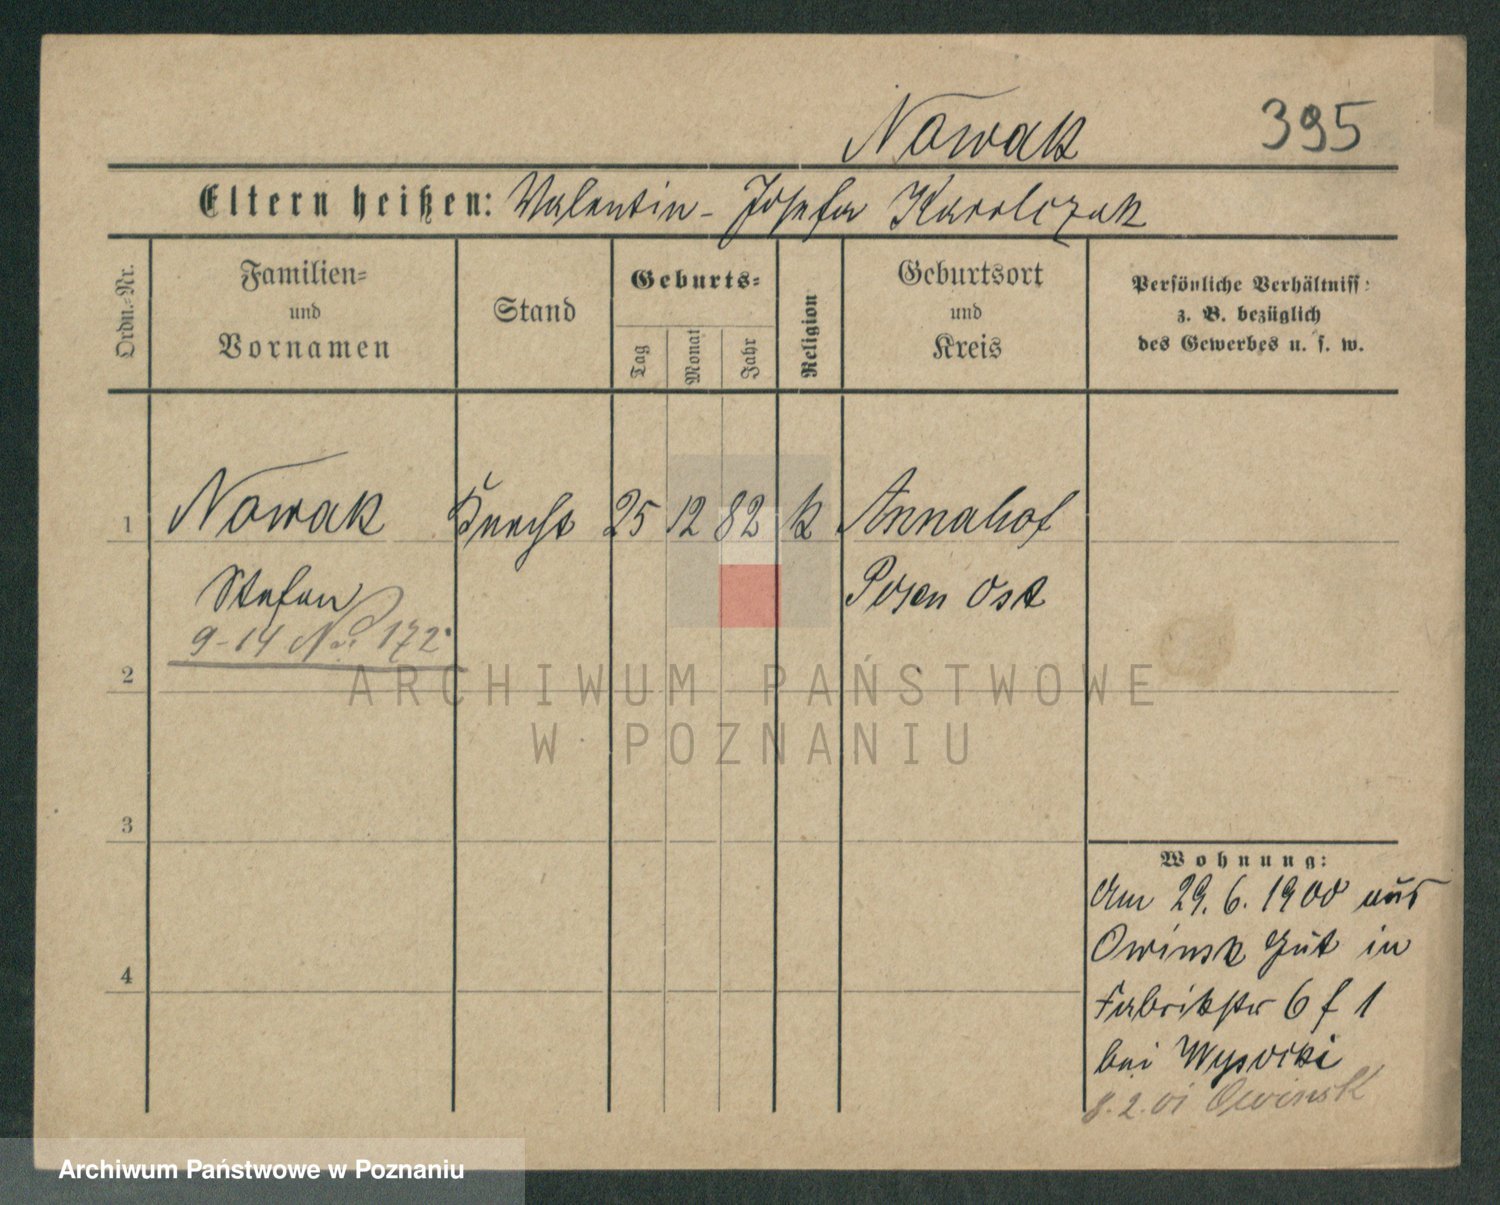 Nowak 395
Eltern heißen: Valentin - Josefa Karolczak
Ordn.-Nr.
Familien-
und
Vornamen
Stand
Geburts-
Tag
Monat
Jahr
Religion
Geburtsort
und
Kreis
Persönliche Verhältniss
z. B. bezüglich
des Gewerbes u. s. w.
1 Nowak Knecht 25 12 82 k Annahof
Stefan Posen Ost
9-14 No. 172
2
ARCHIWUM PAŃSTWOWE
W POZNANIU
3
4
Wohnung:
Am 29. 6. 1900 aus
Owinsk Gut in
Fabrikstr 6 f 1
bei Wysocki
8. 2. 01 Owinsk
Archiwum Państwowe w Poznaniu